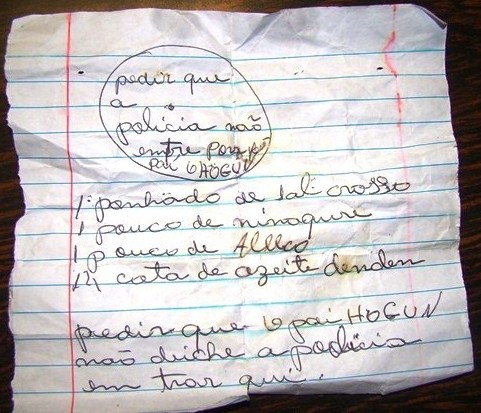 pedir que
a
policia não
entre por
pai OHOGUN
1 ponhado de sal crosso
1 pouco de ninagure
1 pouco de Allco
14 cota de azeite denden
pedir que o pai HOGUN
não deiche a policia
em trar qui.